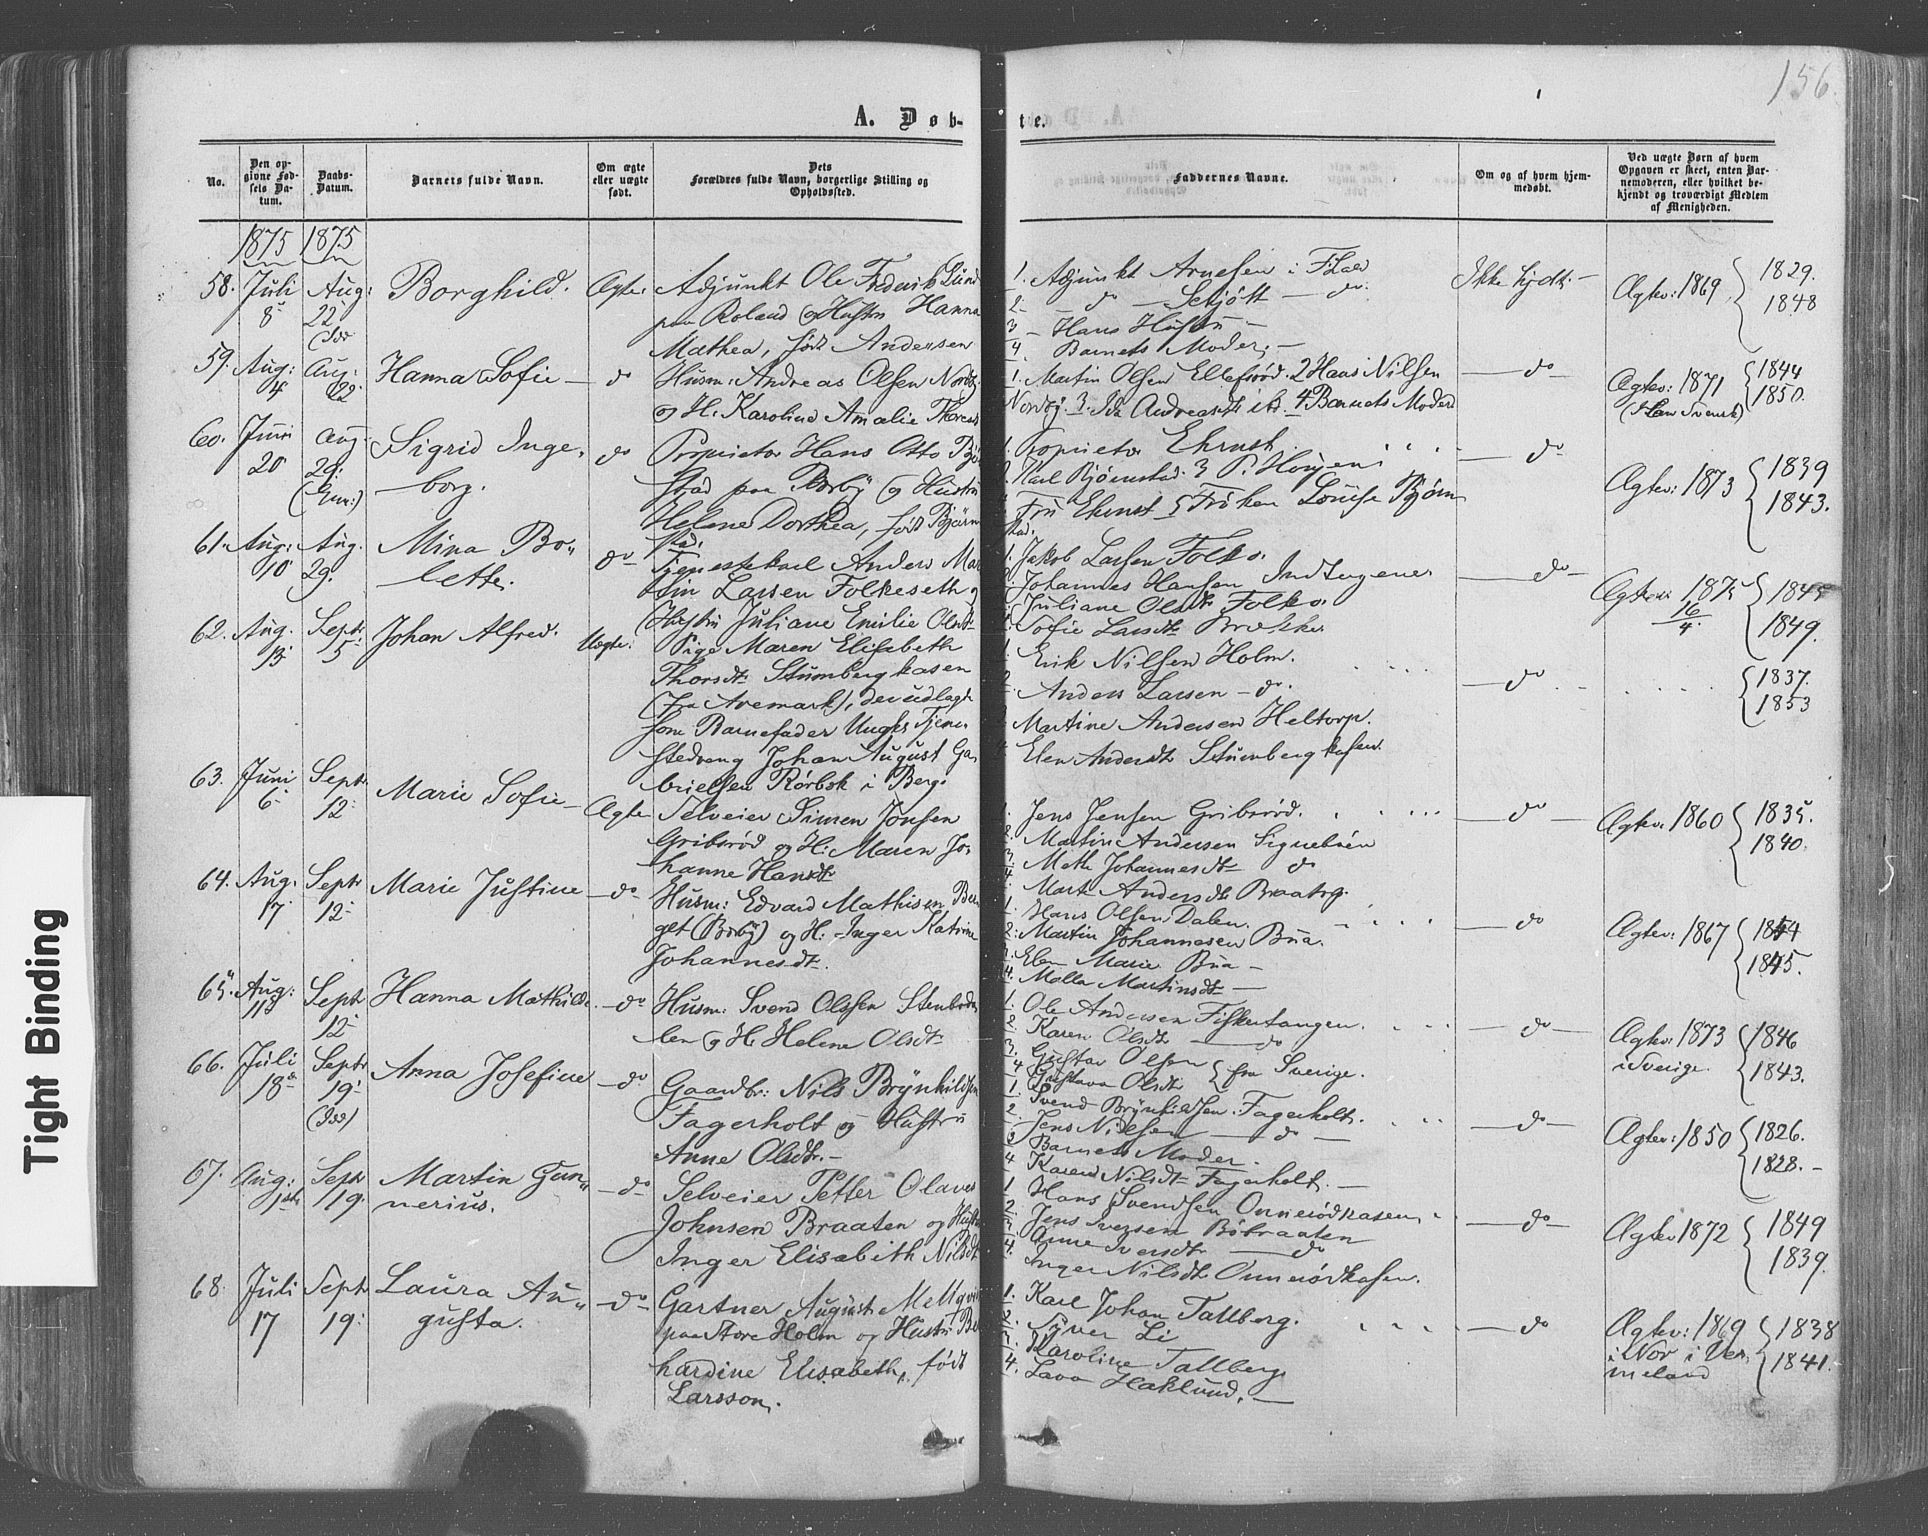 156.
A. Døb-
te.
No.
Den op-
givne Fød-
sels Da-
tum.
Daabs-
Datum.
Barnets fulde Navn.
Om ægte
eller uægte
født.
Dets
Forældres fulde Navn, borgerlige Stilling og
Opholdssted.
Faddernes Navne.
Om og af hvem hjem-
medøbt.
Ved uægte Børn af hvem
Opgaven er skeet, enten Bar-
nemoderen, eller hvilket be-
kjendt og troværdigt Medlem
af Menigheden.
1875 1875
58. Juli 8 Aug: 22 (Idd Borghild. Ægte.
Adjunkt Ole Frederik Lund
paa Roland og Hustru Hanna
Mathea, født Andersen
1. Adjunkt Arnesen i Fhald
2 – do – Schjøtt – do.
3 – Hans Hustru –
4. Barnets Moder. –
Ikke hjdt. –
Ægtev: 1869 { 1829. 1848
59. Aug: 4 Aug. 22 Hanna Sofie – do
Husm: Andreas Olsen Nordby
og H. Karoline Amalie Thores
1. Martin Olsen Ellefsrød. 2 Hans Nilsen
Nordby. 3. Ida Andreasdtr ibd. 4 Barnets Moder
– do –
Ægtev: 1871 { 1844 1850.
(Han Svensk)
60. Juni 20 Aug. 29. (Enn:) Sigrid Inge-
borg. do
Proprietær Hans Otto Bjørn
stad paa Berby og Hustru
Helene Dorthea, født Bjørn
stad.
1. Proprietær Ehrnst
2. Karl Bjørnstad. 3 P. Hougen
4 Fru Ehrnst 5 Frøken Louise Bjørn
stad.
– do –
Ægtev: 1873 { 1839 1843.
61. Aug: 10 Aug. 29. Mina Bo-
lette. do
Tjenestekarl Anders Mar
tin Larsen Folkeseth og
Hustru Juliane Emilie Olsdtr
1. Jakob Larsen Folks.
2 Johannes Hansen Indtagene
3 Juliane Olsdtr Folks.
4 Sofie Larsdtr Brække
– do –
Ægtev: 1875 16/4. { 1845 1849.
62. Aug. 13 Septr 5 Johan Alfred. Uægte.
Pige Maren Elisabeth
Thorsdtr Stumbergkasen
(fra Aremark), der udlagde
som Barnefader Ungk: Tjene
stedreng Johan August Ga
brielsen Rørbæk i Berg.
1. Erik Nilsen Holm.
2. Anders Larsen – do.
3 Martine Andersen Heltorp.
4 Elen Andersdtr Stumbergkasen.
– do
{ 1837. 1853
63. Juni 6 Septr 12 Marie Sofie – Ægte
Selveier Simen Jonsen
Gribsrød og H: Maren Jo-
hanne Hansdtr
1. Jens Jensen Gribsrød.
2 Martin Andersen Signebøen
3. Mathe Johannesdtr do
4. Marte Andersdtr Braatorp.
– do –
Ægtev. 1860 { 1835. 1840.
64. Aug. 17 Septr 12 Marie Justine – do –
Husm: Edvard Mathisen Ber
get (Berby) og H: Inger Katrine
Johannesdtr.
1. Hans Olsen Dalen.
2. Martin Johannesen Bua.
3. Elen Marie Bua –
4. Malla Martinsdtr –
– do
Ægtev: 1867 { 1844 1845.
65. Aug: 13 Septr 12 Hanna Mathilde. – do
Husm: Svend Olssen Stenboda
len og H. Helene Olsdtr
1. Ole Andersen Fiskertangen.
2. Karen Olsdtr – do
3. Gustav Olsen
4 Gustava Olsdtr } fra Sverige.
– do –
Ægtev. 1873 { 1846 1843.
i Sverige.
66. Juli 18 Septr 19 (Idd) Anna Josefine – do
Gaardbr: Nils Brynhildsen
Fagerholt og Hustru
Anne Olsdtr. –
1. Svend Brynhildsen Fagerholt.
2. Jens Nilsen – do –
3 Barnets Moder.
4 Karen Nilsdtr Fagerholt. –
– do –
Ægtev: 1850 { 1826. 1828. –
67. Aug: 1ste Septr 19. Martin Gun-
nerius. – do
Selveier Petter Olaves
Johnsen Braaten og Hustru
Inger Elisabeth Nilsdtr
1 Hans Svendsen Onnerødkasen
2. Jens Iversen Böbraaten
3. Anne Iversdtr – do
4. Inger Nilsdtr Onnerødkasen.
– do –
Ægtev 1872 { 1849 1839.
68. Juli 17 Septr 19. Laura Au-
gusta. – do –
Gartner August Mellqvi
paa Store Holm og Hustru Be
hardine Elisabeth, født
Larsson.
1. Karl Johan Tallberg.
2. Syver Li
3. Karoline Tallberg
4. Lava Haklund. –
– do
Ægtev: 1869 { 1838 1841.
i Nor i Ver
meland
Tight Binding